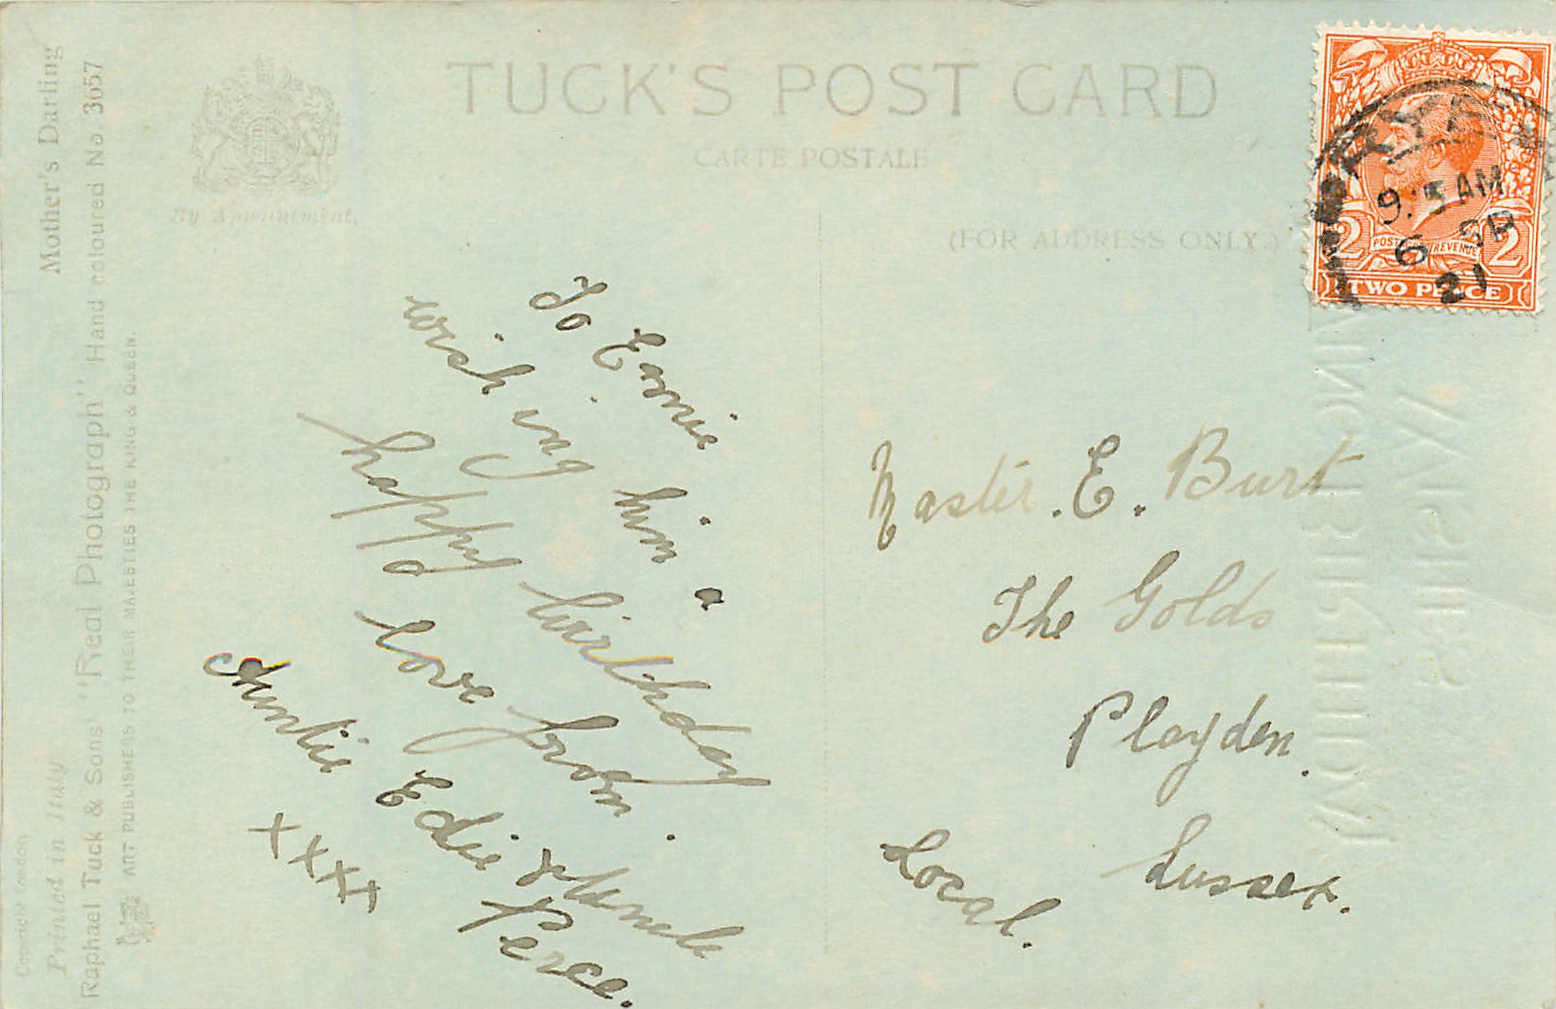 TUCK'S POST CARD
CARTE POSTALE
(FOR ADDRESS ONLY.)
By Appointment.
Mother's Darling
Raphael Tuck & Sons' "Real Photograph" Hand coloured No 3657
ART PUBLISHERS TO THEIR MAJESTIES THE KING & QUEEN.
Copyright London
Printed in Italy
To Ernie
wishing him a
happy birthday
love from.
Auntie Edie & Uncle
Perce.
xxxx
Master. E. Burt
The Golds
Playden.
Sussex.
Local.
RYE
9.15 AM
6 SP
21
2 POSTAGE REVENUE 2
TWO PENCE